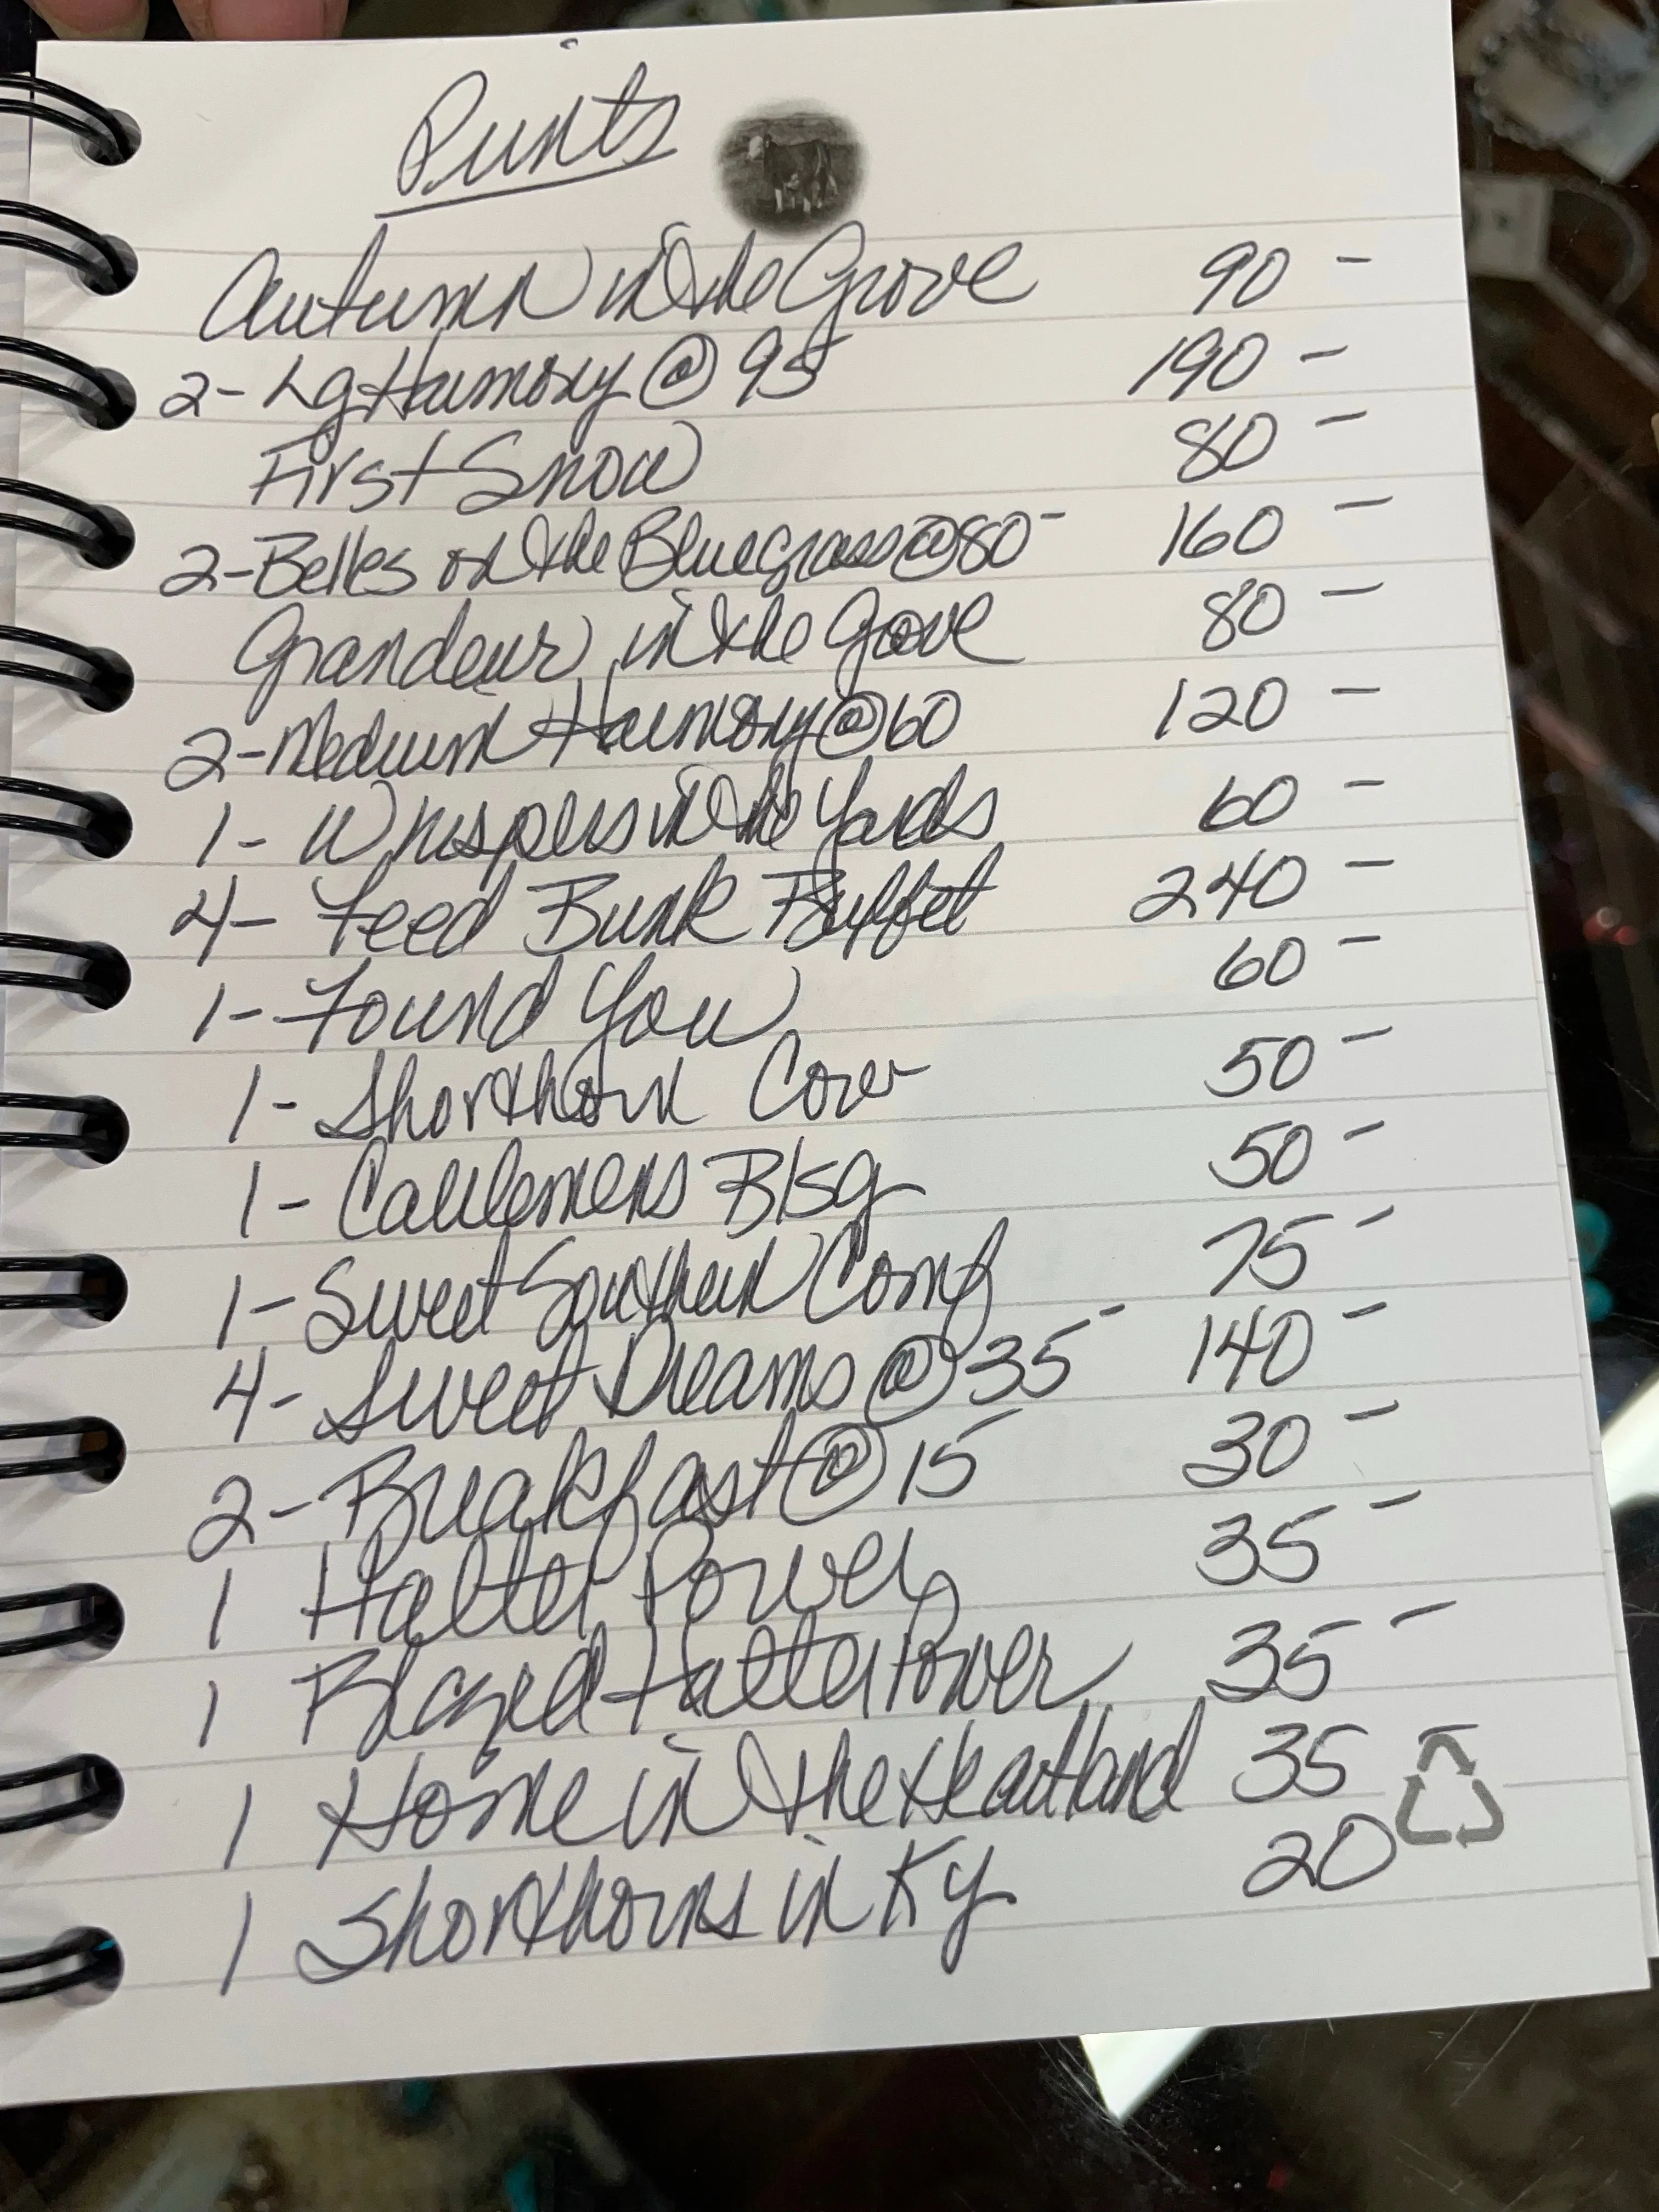 Prints
Autumn in the Grove 90 -
2- Lg Harmony @ 95 190 -
First Snow 80 -
2- Belles on the Bluegrass @ 80- 160 -
Grandeur in the Grove 80 -
2- Medium Harmony @ 60 120 -
1- Whispers in the Yards 60 -
4- Feed Bunk Buffet 240 -
1- Found You 60 -
1- Shorthorn Cover 50 -
1- Cattlemens Blsg 50 -
1- Sweet Southern Comf 75 -
4- Sweet Dreams @ 35- 140 -
2- Breakfast @ 15 30 -
1 Halter Power 35 -
1 Blazed Halter Power 35 -
1 Home in the Heartland 35
1 Shorthorns in Ky 20